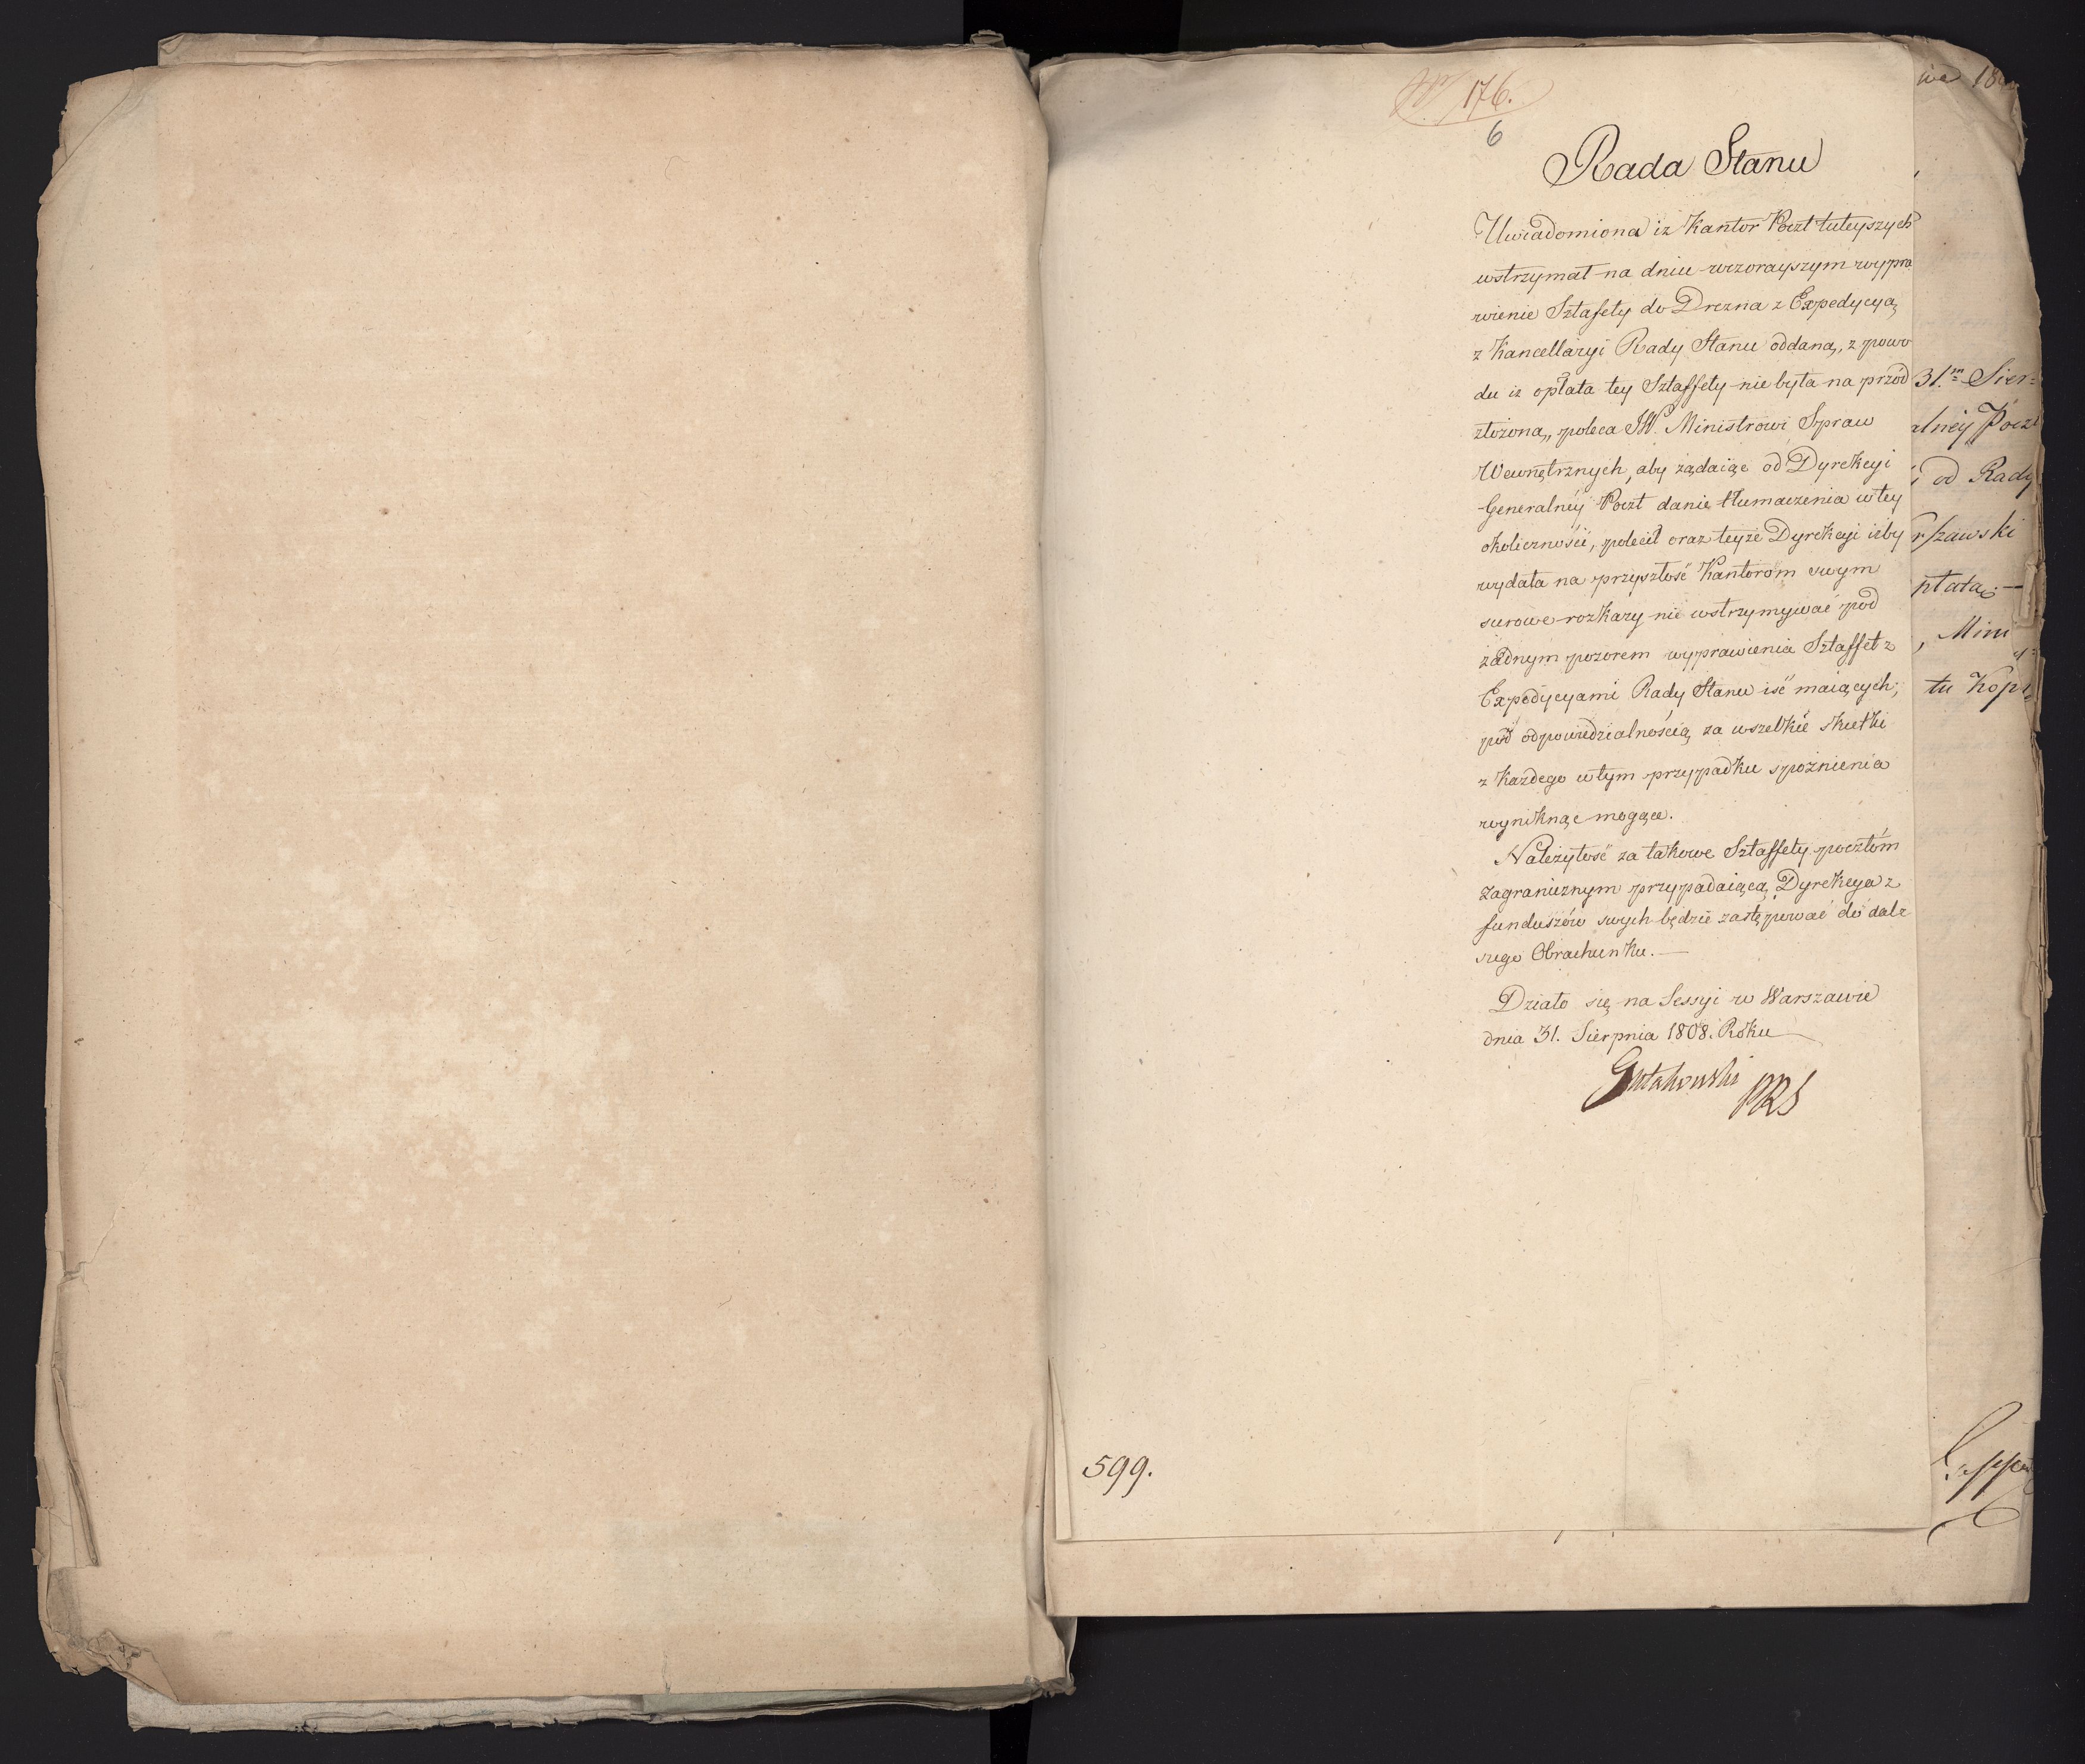 176.
6
Rada Stanu
Uwiadomiona iż Kantor Poczt tuteyszych
wstrzymał na dniu wczorayszym wypra
wienie Sztafety do Drezna z Expedycyą
z Kancellaryi Rady Stanu oddaną, z powo
du iż opłata tey Sztaffety nie była na przód
złożoną, poleca JW. Ministrowi Spraw
Wewnętrznych, aby żądaiąc od Dyrekcyi
Generalnéy Poczt danie tłumaczenia w tey
okoliczności, polecił oraz teyże Dyrekcyi iżby
wydała na przyszłość Kantorom swym
surowe rozkazy nie wstrzymywać pod
żadnym pozorem wyprawienia Sztaffet z
Expedycyami Rady Stanu iść maiących;
pod odpowiedzialnością za wszelkie skutki
z każdego w tym przypadku spoźnienia
wyniknąć mogące.
Należytość za takowe Sztaffety pocztóm
zagranicznym przypadaiącą Dyrekcya z
funduszów swych będzie zastępować do dal-
szego Obrachunku. —
Działo się na Sessyi w Warszawie
dnia 31. Sierpnia 1808. Roku
Gutakowski PRS
599.
31.m Sier=
alney Poczt
i od Rady
rszawski
płatą. —
, Mini
tu Kopi